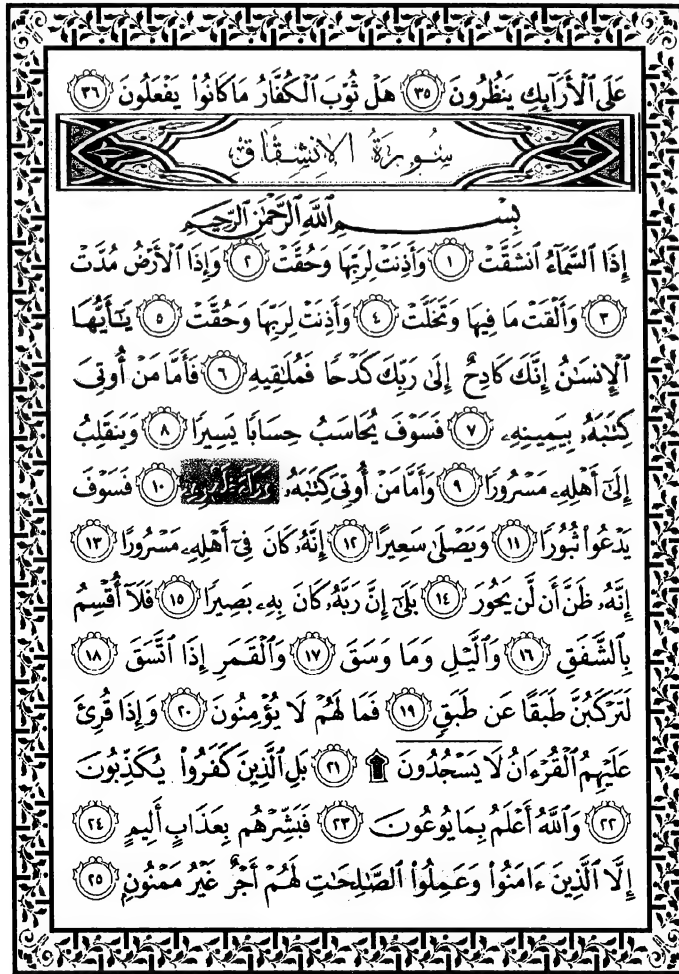 عَلَى ٱلْأَرَآئِكِ يَنظُرُونَ ٣٥ هَلْ ثُوِّبَ ٱلْكُفَّارُ مَا كَانُوا۟ يَفْعَلُونَ ٣٦
سُورَةُ الِانشِقَاقِ
بِسْمِ ٱللَّهِ ٱلرَّحْمَٰنِ ٱلرَّحِيمِ
إِذَا ٱلسَّمَآءُ ٱنشَقَّتْ ١ وَأَذِنَتْ لِرَبِّهَا وَحُقَّتْ ٢ وَإِذَا ٱلْأَرْضُ مُدَّتْ
٣ وَأَلْقَتْ مَا فِيهَا وَتَخَلَّتْ ٤ وَأَذِنَتْ لِرَبِّهَا وَحُقَّتْ ٥ يَٰٓأَيُّهَا
ٱلْإِنسَٰنُ إِنَّكَ كَادِحٌ إِلَىٰ رَبِّكَ كَدْحًا فَمُلَٰقِيهِ ٦ فَأَمَّا مَنْ أُوتِىَ
كِتَٰبَهُۥ بِيَمِينِهِۦ ٧ فَسَوْفَ يُحَاسَبُ حِسَابًا يَسِيرًا ٨ وَيَنقَلِبُ
إِلَىٰٓ أَهْلِهِۦ مَسْرُورًا ٩ وَأَمَّا مَنْ أُوتِىَ كِتَٰبَهُۥ وَرَآءَ ظَهْرِهِۦ ١٠ فَسَوْفَ
يَدْعُوا۟ ثُبُورًا ١١ وَيَصْلَىٰ سَعِيرًا ١٢ إِنَّهُۥ كَانَ فِىٓ أَهْلِهِۦ مَسْرُورًا ١٣
إِنَّهُۥ ظَنَّ أَن لَّن يَحُورَ ١٤ بَلَىٰٓ إِنَّ رَبَّهُۥ كَانَ بِهِۦ بَصِيرًا ١٥ فَلَآ أُقْسِمُ
بِٱلشَّفَقِ ١٦ وَٱلَّيْلِ وَمَا وَسَقَ ١٧ وَٱلْقَمَرِ إِذَا ٱتَّسَقَ ١٨
لَتَرْكَبُنَّ طَبَقًا عَن طَبَقٍ ١٩ فَمَا لَهُمْ لَا يُؤْمِنُونَ ٢٠ وَإِذَا قُرِئَ
عَلَيْهِمُ ٱلْقُرْءَانُ لَا يَسْجُدُونَ ۩ ٢١ بَلِ ٱلَّذِينَ كَفَرُوا۟ يُكَذِّبُونَ
٢٢ وَٱللَّهُ أَعْلَمُ بِمَا يُوعُونَ ٢٣ فَبَشِّرْهُم بِعَذَابٍ أَلِيمٍ ٢٤
إِلَّا ٱلَّذِينَ ءَامَنُوا۟ وَعَمِلُوا۟ ٱلصَّٰلِحَٰتِ لَهُمْ أَجْرٌ غَيْرُ مَمْنُونٍۭ ٢٥